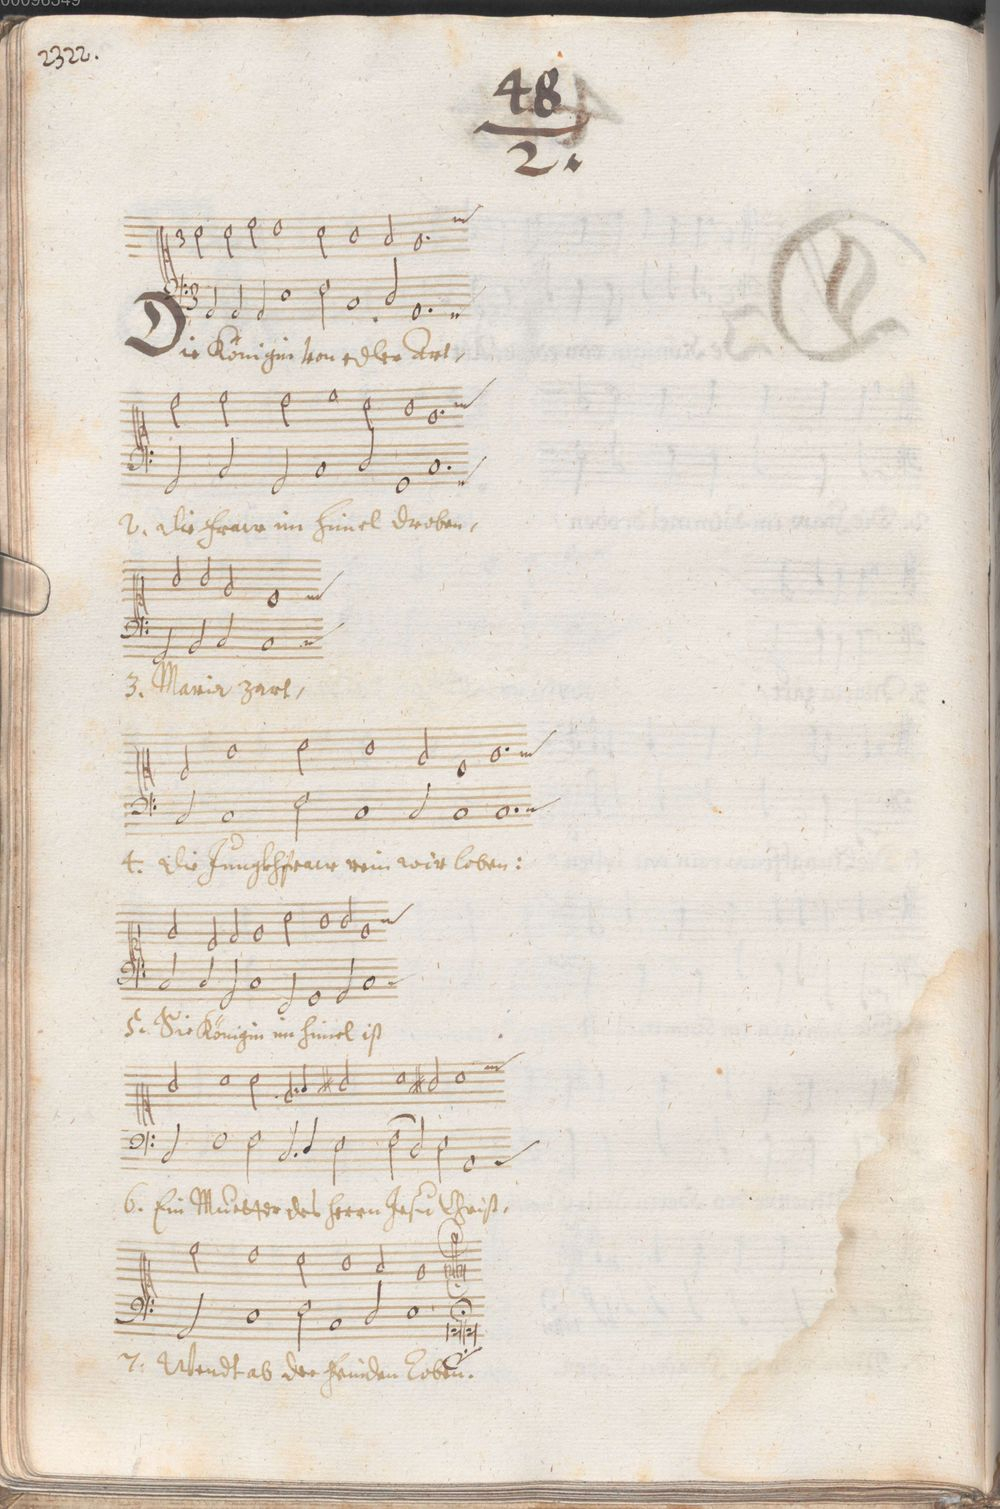 00096349
2322.
48
2.
Die Königin von edler Art,
2. die fraw im himel droben,
3. Maria zart,
4. die Jungkhfraw rein wir loben:
5. Sie Königin im himel ist
6. Ein Muetter des herrn Jesu Christ,
7. Wendt ab der feinden Toben.